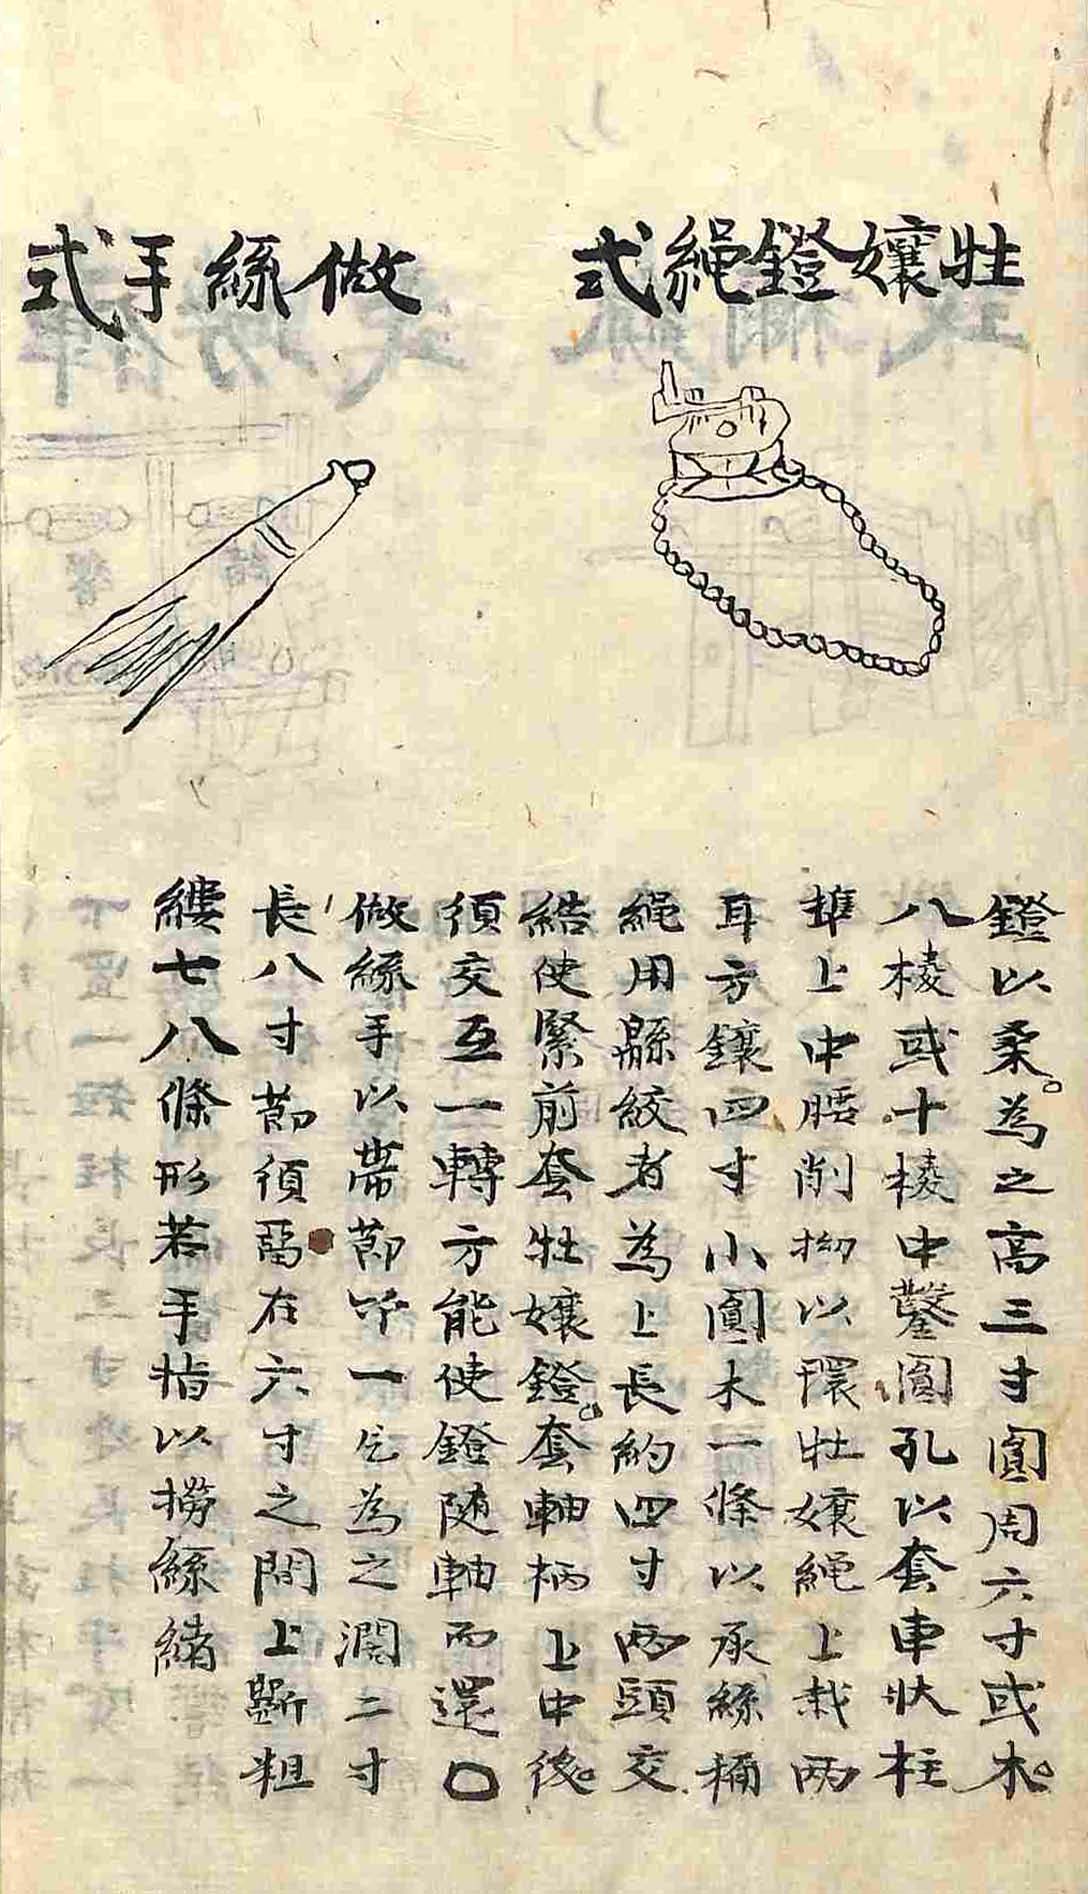 牡孃鐙繩式
做絲手式
鐙以柔。為之高三寸圓周六寸或木。
八棱或十棱中鑿圓孔以套車狀柱
榫上中腰削拗以環牡孃繩上栽兩
耳方鑲四寸小圓木一條以承絲桶
繩用縣絞者為上長約四寸兩頭交
結使緊前套牡孃鐙。套軸柄上中後。
須交互一轉方能使鐙隨軸而還〇
做絲手以帶節竹一乞為之濶二寸
長八寸節須畱在六寸之間上斷粗
縷七八條形若手指以撈絲緒